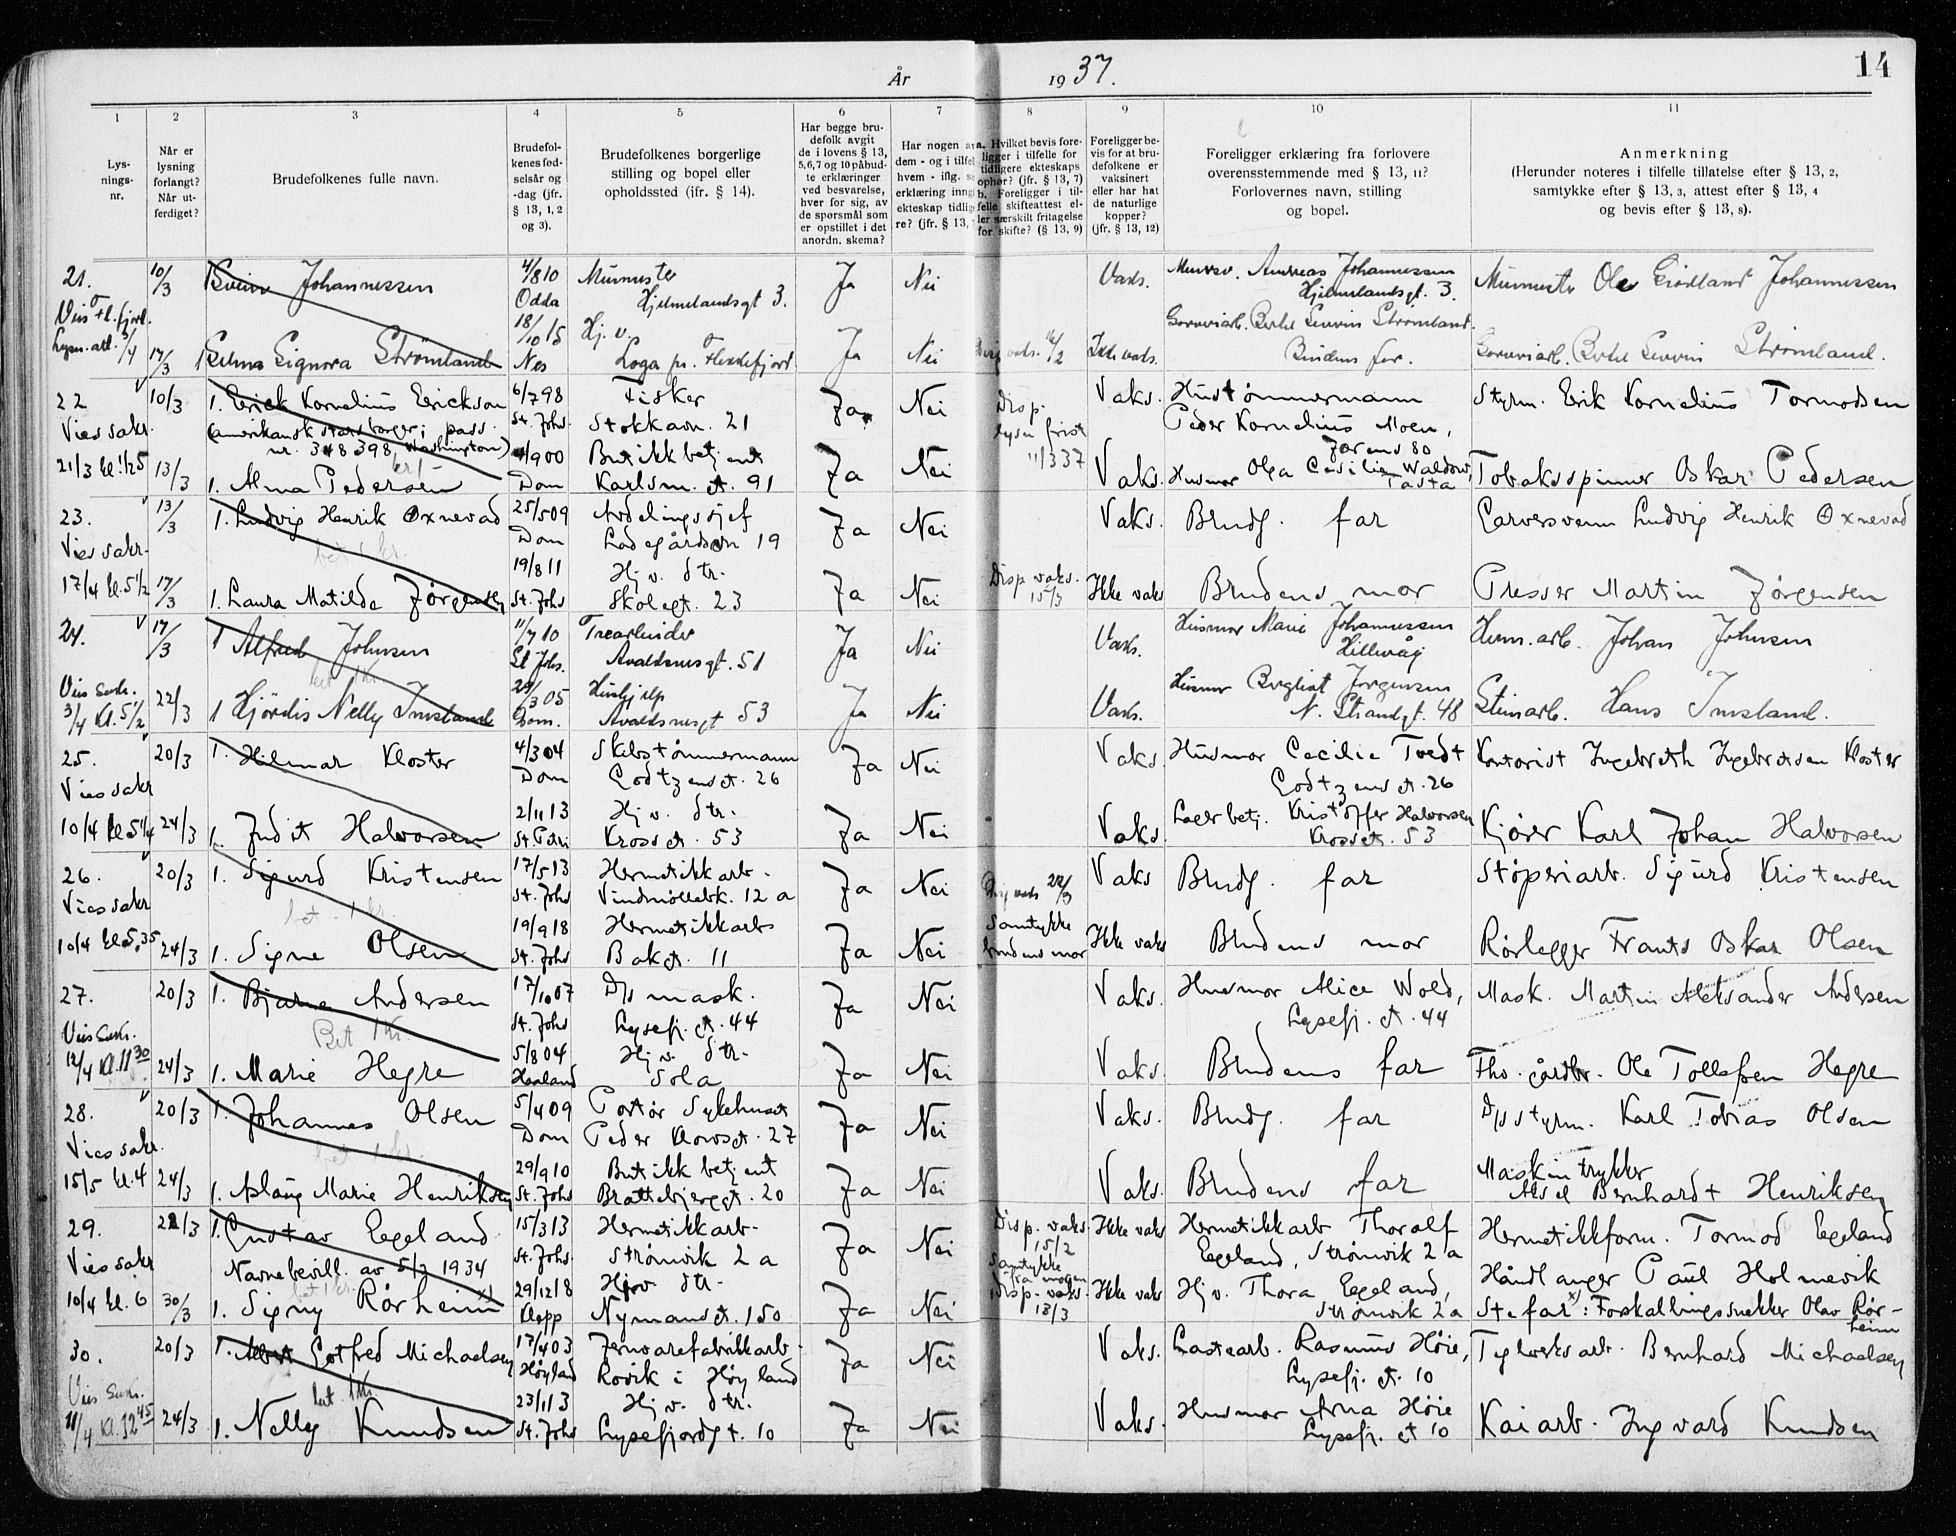 År 1937.
14
1 2 3 4 5 6 7 8 9 10 11
Lys-
nings-
nr.
Når er
lysning
forlangt?
Når ut-
ferdiget?
Brudefolkenes fulle navn.
Brudefol-
kenes fød-
selsår og
-dag (jfr.
§ 13, 1, 2
og 3).
Brudefolkenes borgerlige
stilling og bopel eller
opholdssted (ifr. § 14).
Har begge bru-
defolk avgit
de i lovens § 13,
5,6,7 og 10 påbud-
te erklæringer
ved besvarelse,
hver for sig, av
de spørsmål som
er opstillet i det
anordn. skema?
Har nogen av
dem - og i tilfel
hvem - iflg.
erklæring inng
ekteskap tidlig
re? (jfr. § 13,
a. Hvilket bevis fore-
ligger i tilfelle for
tidligere ekteskaps
ophør? (jfr. § 13, 7)
b. Foreligger i til-
felle skifteattest el-
ler særskilt fritagelse
for skifte? (§ 13, 9)
Foreligger be-
vis for at bru-
defolkene er
vaksinert
eller har hat
de naturlige
kopper?
(jfr. § 13, 12)
Foreligger erklæring fra forlovere
overensstemmende med § 13, 11?
Forlovernes navn, stilling
og bopel.
Anmerkning
(Herunder noteres i tilfelle tillatelse efter § 13, 2,
samtykke efter § 13, 3, attest efter § 13, 4
og bevis efter § 13, 8).
21. 10/3 Johannessen 4/8 10 Odda Murmester Hjelmelandsgt 3. Ja Nei Vaks. Andreas Johannessen Hjelmelandsgt. 3. Murmester Ole Johannessen
17/3 Selma Signora Strømland 18/10 15 Nes Hj. v. Loga pr. Flekkefjord Ja Nei Ikke vaks. Strømland. Brudens far. Strømland.
22 10/3 1. Erick Kornelius Erickson 6/7 98 St. Johs. Fisker Stokkavn. 21 Ja Nei Disp. lysn frist 11/3 37 Vaks. Hustømmermann Peder Kornelius Moen, Styrm. Erik Kornelius Tormodsen
Vies sakr. (amerikansk statsborger; pass. nr. 348 398, Washington)
21/3 kl. 1.25 13/3 1. Alma Pedersen 9 00 Dom Butikkbetjent Karlsm. gt. 91 Ja Nei Vaks. Husmor Olga Cesilie Waldow, Tasta Tobaksspinner Oskar Pedersen
23. 13/3 1. Ludvig Henrik Oxnevad 25/5 09 Dom Avdelingssjef Ladegårdsvn 19 Ja Nei Vaks. Brudg. far Garversvenn Ludvig Henrik Oxnevad
Vies sakr.
17/4 kl. 5 1/2 17/3 1. Laura Matilde Jørgensen 19/8 11 St. Johs Hj v. dtr. Skolegt. 23 Ja Nei Disp vaks. 15/3 Ikke vaks Brudens mor Presser Martin Jørgensen
24. 17/3 1 Alfred Johnsen 11/7 10 St Johs. Trearbeider Avaldsnesgt. 51 Ja Nei Vaks. Husmor Marie Johannessen Hillevåg Herm.arb. Johan Johnsen
bet 1 kr.
Vies sakr. 3/4 kl. 5 1/2 22/3 1 Hjördis Nelly Imsland 3 05 Dom. Hushjelp Avaldsnesgt 53 Ja Nei Vaks. Husmor Jørgensen N. Strandgt. 48 Stenarb. Hans Imsland.
25. 20/3 1. Hilmar Kloster 4/3 04 Dom Skibstømmermann Godtzensgt. 26 Ja Nei Vaks Husmor Cecilie Tvedt Godtzensgt. 26 Kontorist Ingebreth Ingebretsen Kloster
Vies sakr
10/4 kl 5 1/4 24/3 1. Judit Halvorsen 2/11 13 St. Petri Hj v. dtr. Krossgt. 53 Ja Nei Vaks. Lagerbetj. Kristoffer Halvorsen Krossgt. 53 Kjører Karl Johan Halvorsen
26. 20/3 1. Sigurd Kristensen 17/5 13 St. Johs Hermetikkarb. Vindmøllebk. 12 a Ja Nei Vaks Brudg. far Støperiarb. Sigurd Kristensen
Vies sakr bet. 1 kr.
10/4 kl. 5.35 24/3 1. Signe Olsen 19/9 18 St. Johs Hermetikkarb Bakgt. 11 Ja Nei vaks 22/3 Samtykke brudens mor Ikke vaks Brudens mor Rørlegger Frants Oskar Olsen
27. 20/3 1. Bjarne Andersen 17/10 07 St. Johs D/s mask. Lysefj. gt. 44 Ja Nei Vaks. Husmor Alice Wold, Lysefj. gt. 44 Mask. Martin Aleksander Andersen
Vies Sakr. Bet 1 Kr.
12/4 kl. 11 30 24/3 1. Marie Hegre 5/8 04 Haaland Hj v. dtr. Sola Ja Nei Vaks. Brudens far Fhv. gårdbr. Ole Tollefsen Hegre
28. 20/3 1. Johannes Olsen 5/4 09 Dom Portør Sykehuset Peder Klowsgt. 27 Ja Nei Vaks. Brudg. far D/s styrm. Karl Tobias Olsen
Vies sakr. bet 1 kr.
15/5 kl. 4 24/3 1. Aslaug Marie Henriksen 29/9 10 St. Johs Butikkbetjent Brattebjerggt. 20 Ja Nei Vaks. Brudens far Maskintrykker Aksel Bernhardt Henriksen
29. /3 1. Gustav Egeland 15/3 13 St. Johs. Hermetikkarb. Strømvik 2 a Ja Nei Disp. vaks. 15/2 Samtykke fra mogen Ikke vaks Hermetikkarb Thoralf Egeland, Strømvik 2 a Hermetikkform. Tormod Egeland
Vies sakr Navnebevill. av 5/3 1934 bet 1 kr.
10/4 kl. 6 30/3 1. Signy Rørheim x) 29/12 18 Klepp Hj v dtr. Nymansgt. 150 Ja Nei Disp. vaks. 13/3 Ikke vaks Hj v. Thora Egeland, Strømvik 2 a Håndlanger Paul Holmevik Stefar x): Forskallingssnekker Olav Rørheim
30. 20/3 1. Gotfred Michaelsen 17/4 03 Høyland Jernvarefabrikkarb. Rovik i Høyland Ja Nei Vaks. Lastearb. Rasmus Høie, Lysefj. gt. 10 Teglverksarb. Bernhard Michaelsen
Vies Sakr. bet. 1 Kr.
11/4 Kl. 12 45 24/3 1. Nelly Knudsen 23/1 13 St. Johs Hj v. dtr. Lysefjordgt. 10 Ja Nei Vaks. Husmor Anna Høie Lysefj. gt 10 Kaiarb. Ingvard Knudsen